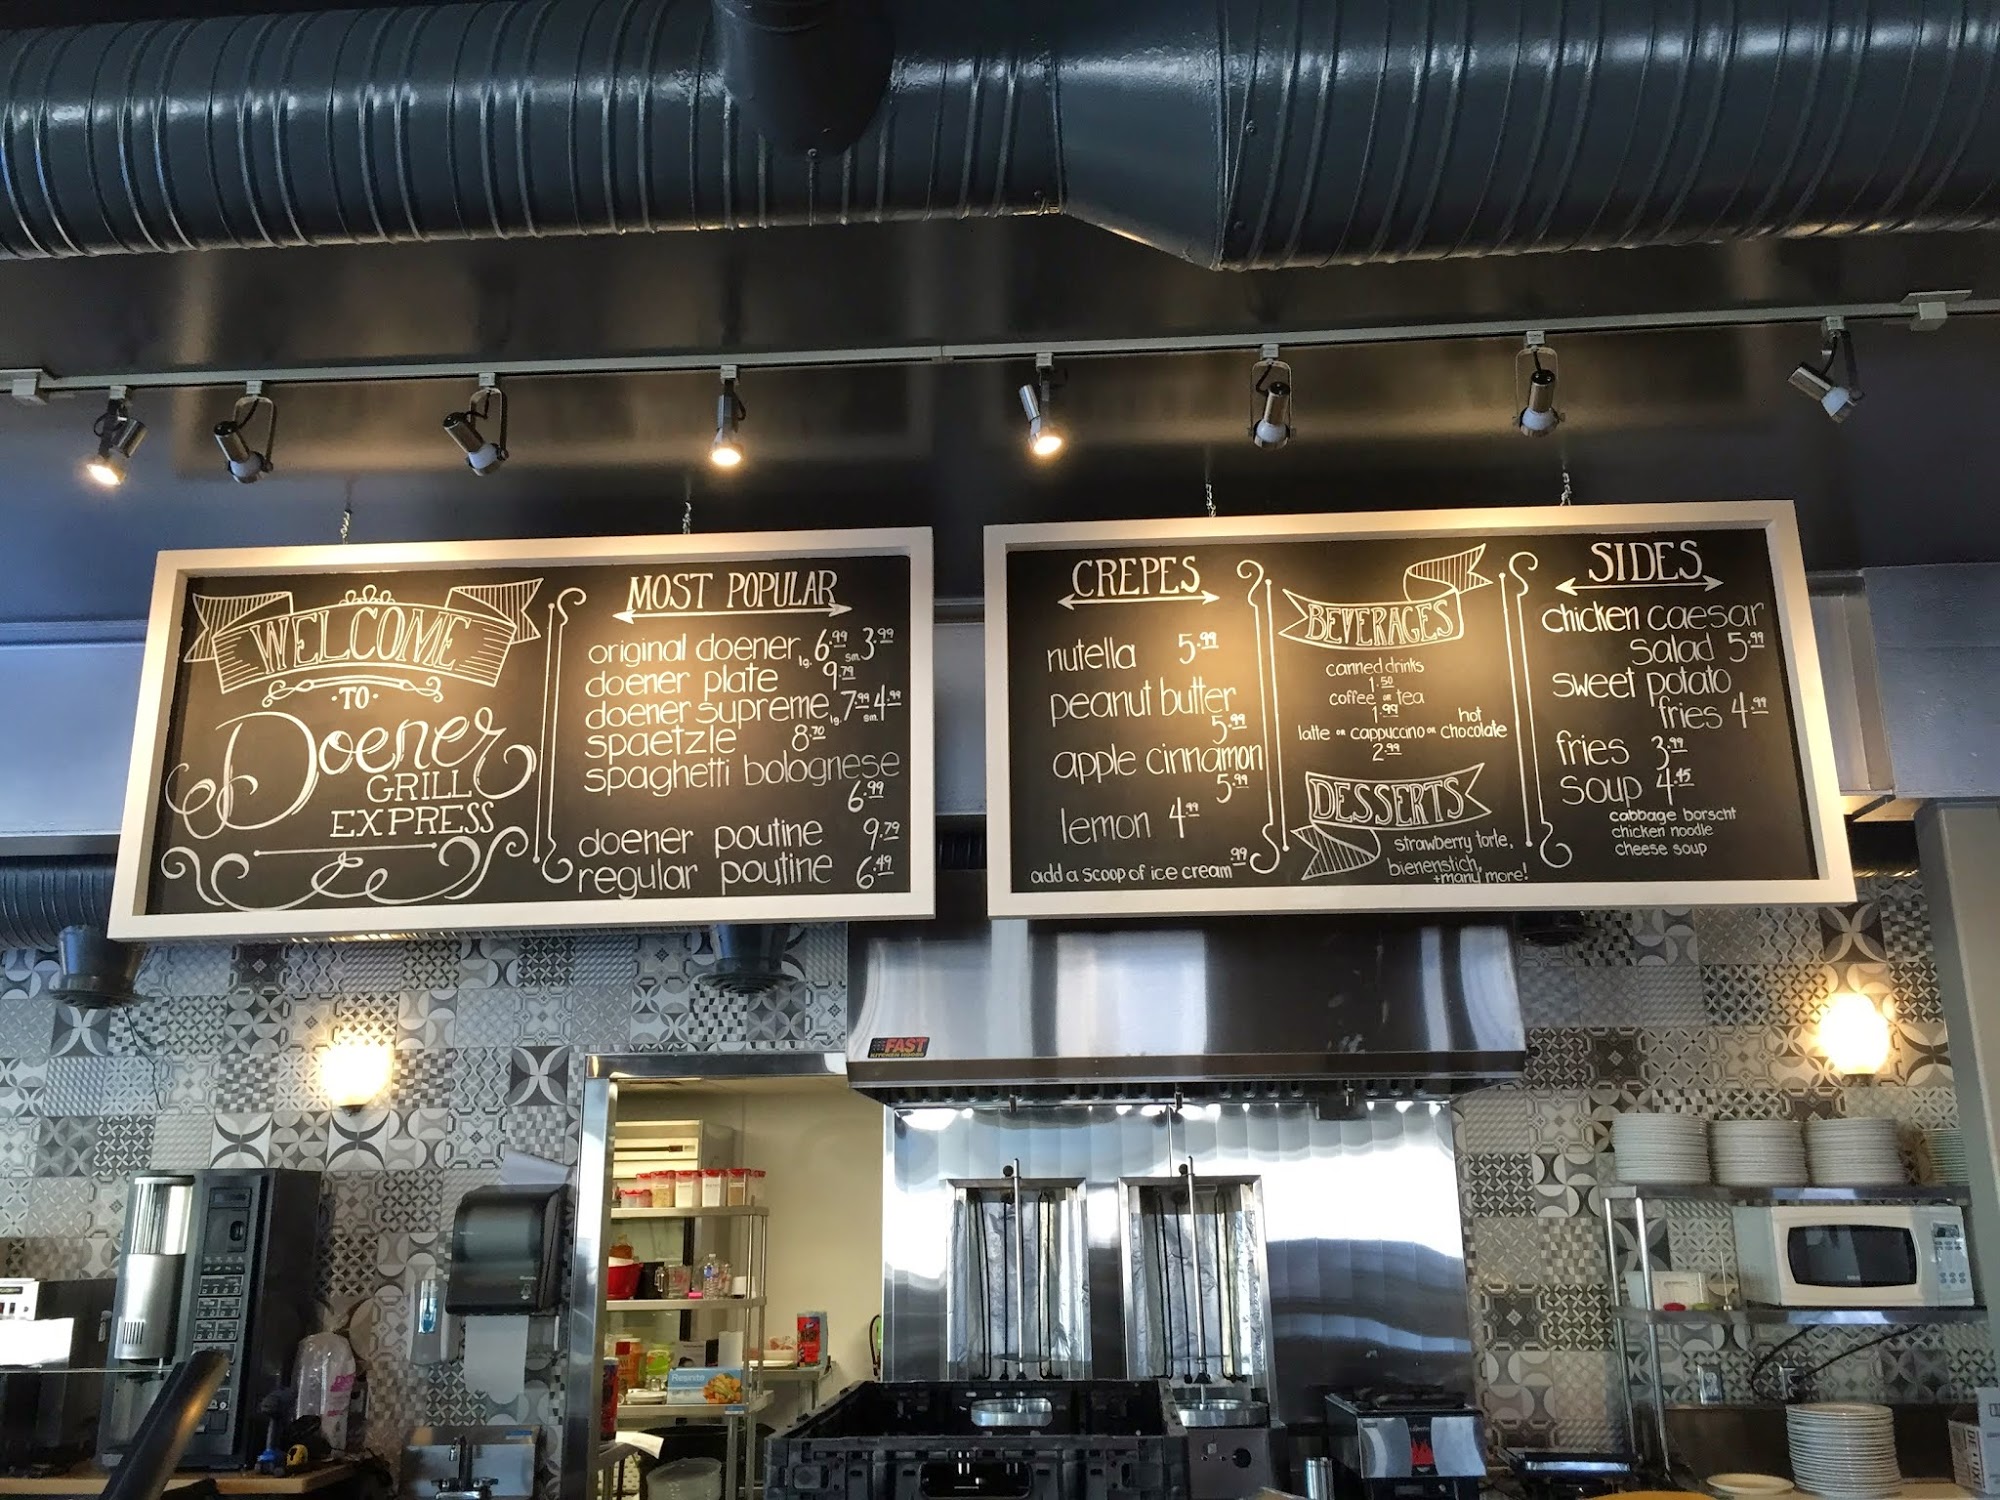 WELCOME
·TO·
Doener
GRILL
EXPRESS
MOST POPULAR
original doener lg. 6.99 sm. 3.99
doener plate 9.79
doener supreme lg. 7.99 sm. 4.99
spaetzle 8.70
spaghetti bolognese
6.99
doener poutine 9.79
regular poutine 6.49
CREPES
nutella 5.99
peanut butter
5.99
apple cinnamon
5.99
lemon 4.99
add a scoop of ice cream .99
BEVERAGES
canned drinks
1.50
coffee or tea
1.99
latte or cappuccino or hot chocolate
2.99
DESSERTS
strawberry torte,
bienenstich,
+many more!
SIDES
chicken caesar
salad 5.99
sweet potato
fries 4.99
fries 3.99
soup 4.45
cabbage borscht
chicken noodle
cheese soup
FAST
KITCHEN HOODS
Resinite